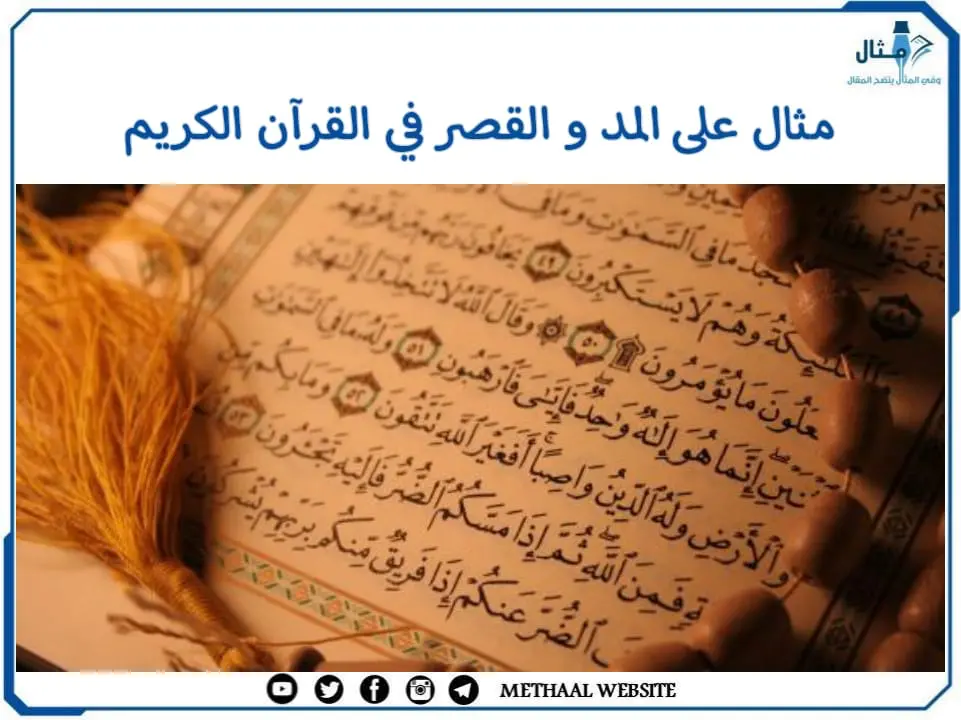 مثال
وفي المثال يتضح المقال
مثال على المد و القصر في القرآن الكريم
سْجُدُ مَا فِي ٱلسَّمَـٰوَٰتِ وَمَا فِي
وَٱلْمَلَـٰٓئِكَةُ وَهُمْ لَا يَسْتَكْبِرُونَ ٤٩ يَخَافُونَ رَبَّهُم مِّن فَوْقِهِمْ
عَلُونَ مَا يُؤْمَرُونَ ۩ ٥٠ ۞ وَقَالَ ٱللَّهُ لَا تَتَّخِذُوٓا۟ إِلَـٰهَيْنِ
ثْنَيْنِ ۖ إِنَّمَا هُوَ إِلَـٰهٌ وَٰحِدٌ ۖ فَإِيَّـٰىَ فَٱرْهَبُونِ ٥١ وَلَهُۥ مَا فِي ٱلسَّمَـٰوَٰتِ
وَٱلْأَرْضِ وَلَهُ ٱلدِّينُ وَاصِبًا ۚ أَفَغَيْرَ ٱللَّهِ تَتَّقُونَ ٥٢ وَمَا بِكُم مِّن
ةٍ فَمِنَ ٱللَّهِ ۖ ثُمَّ إِذَا مَسَّكُمُ ٱلضُّرُّ فَإِلَيْهِ تَجْـَٔرُونَ ٥٣
ٱلضُّرَّ عَنكُمْ إِذَا فَرِيقٌ مِّنكُم بِرَبِّهِمْ يُشْرِكُونَ
METHAAL WEBSITE